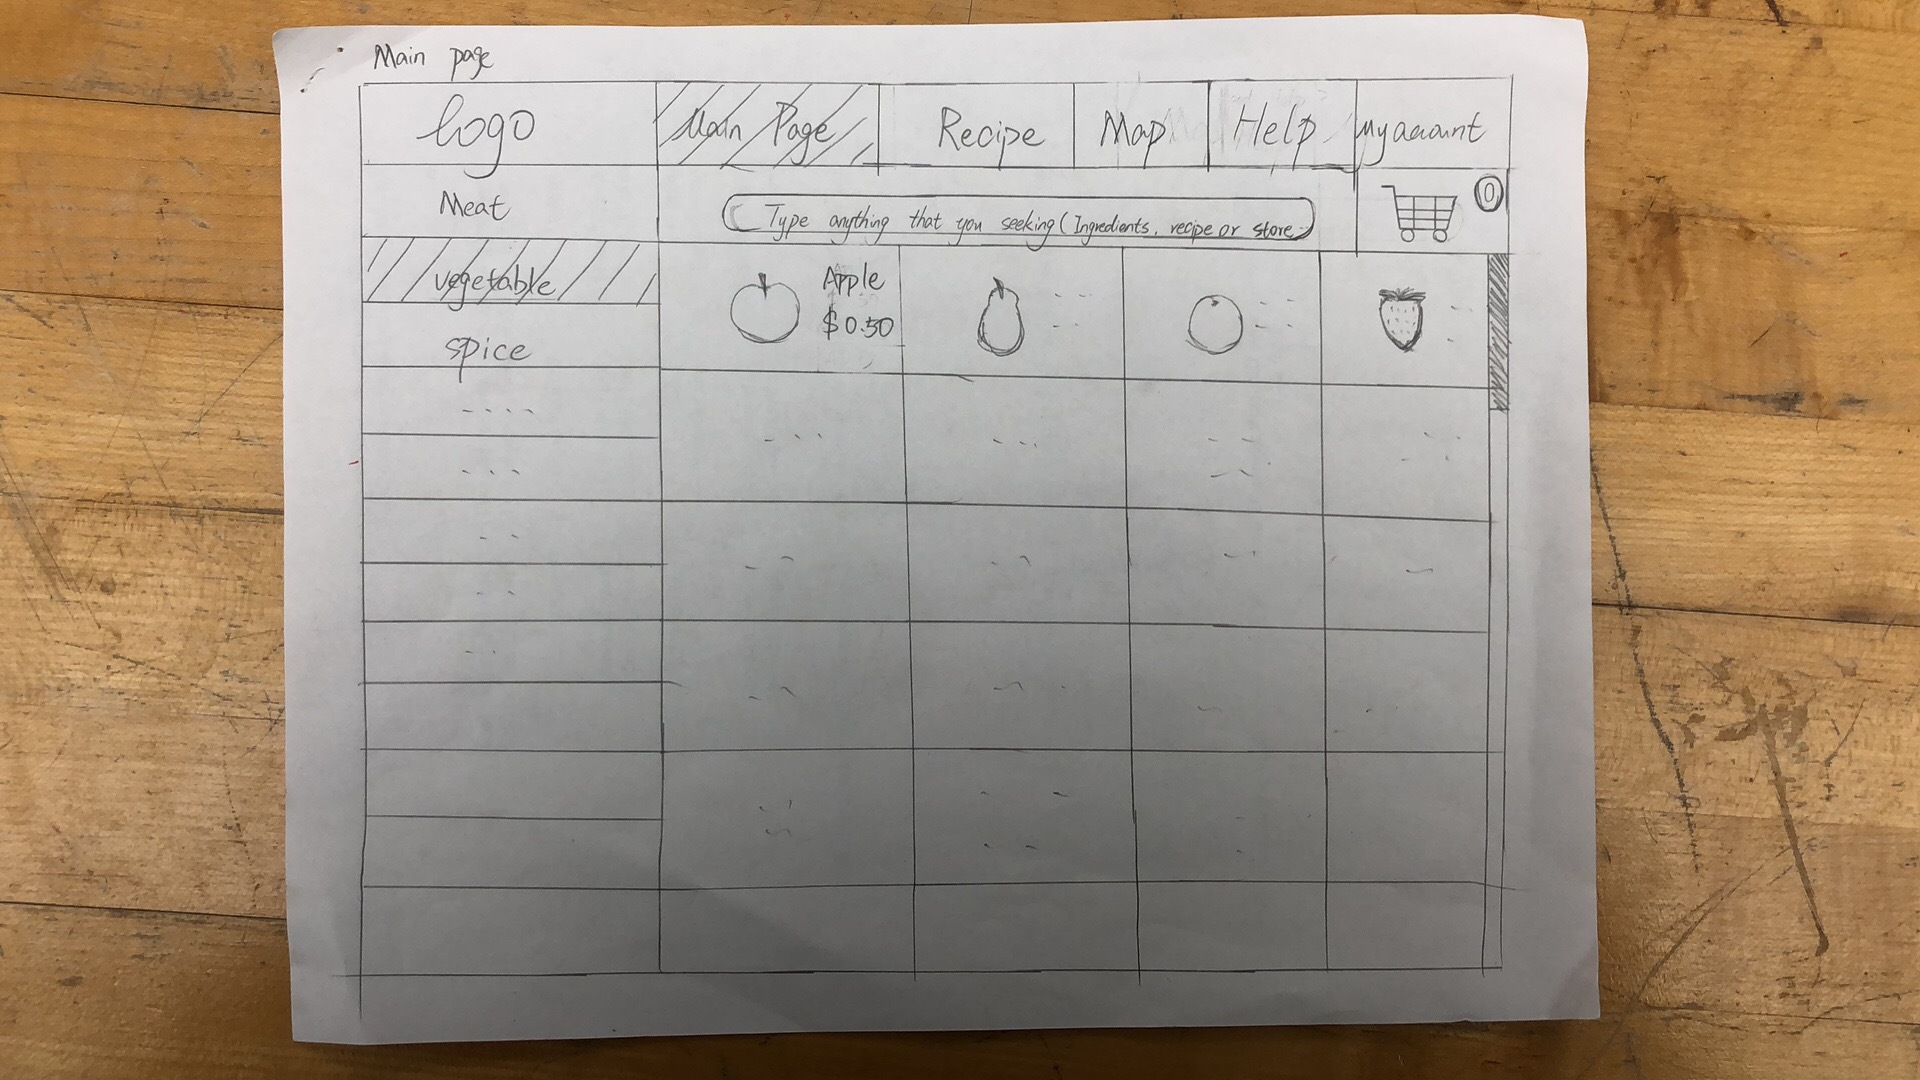 Main page
logo
Main Page
Recipe
Map
Help
My account
Meat
Type anything that you seeking (Ingredients, recipe or store)
0
vegetable
Apple
$0.50
spice